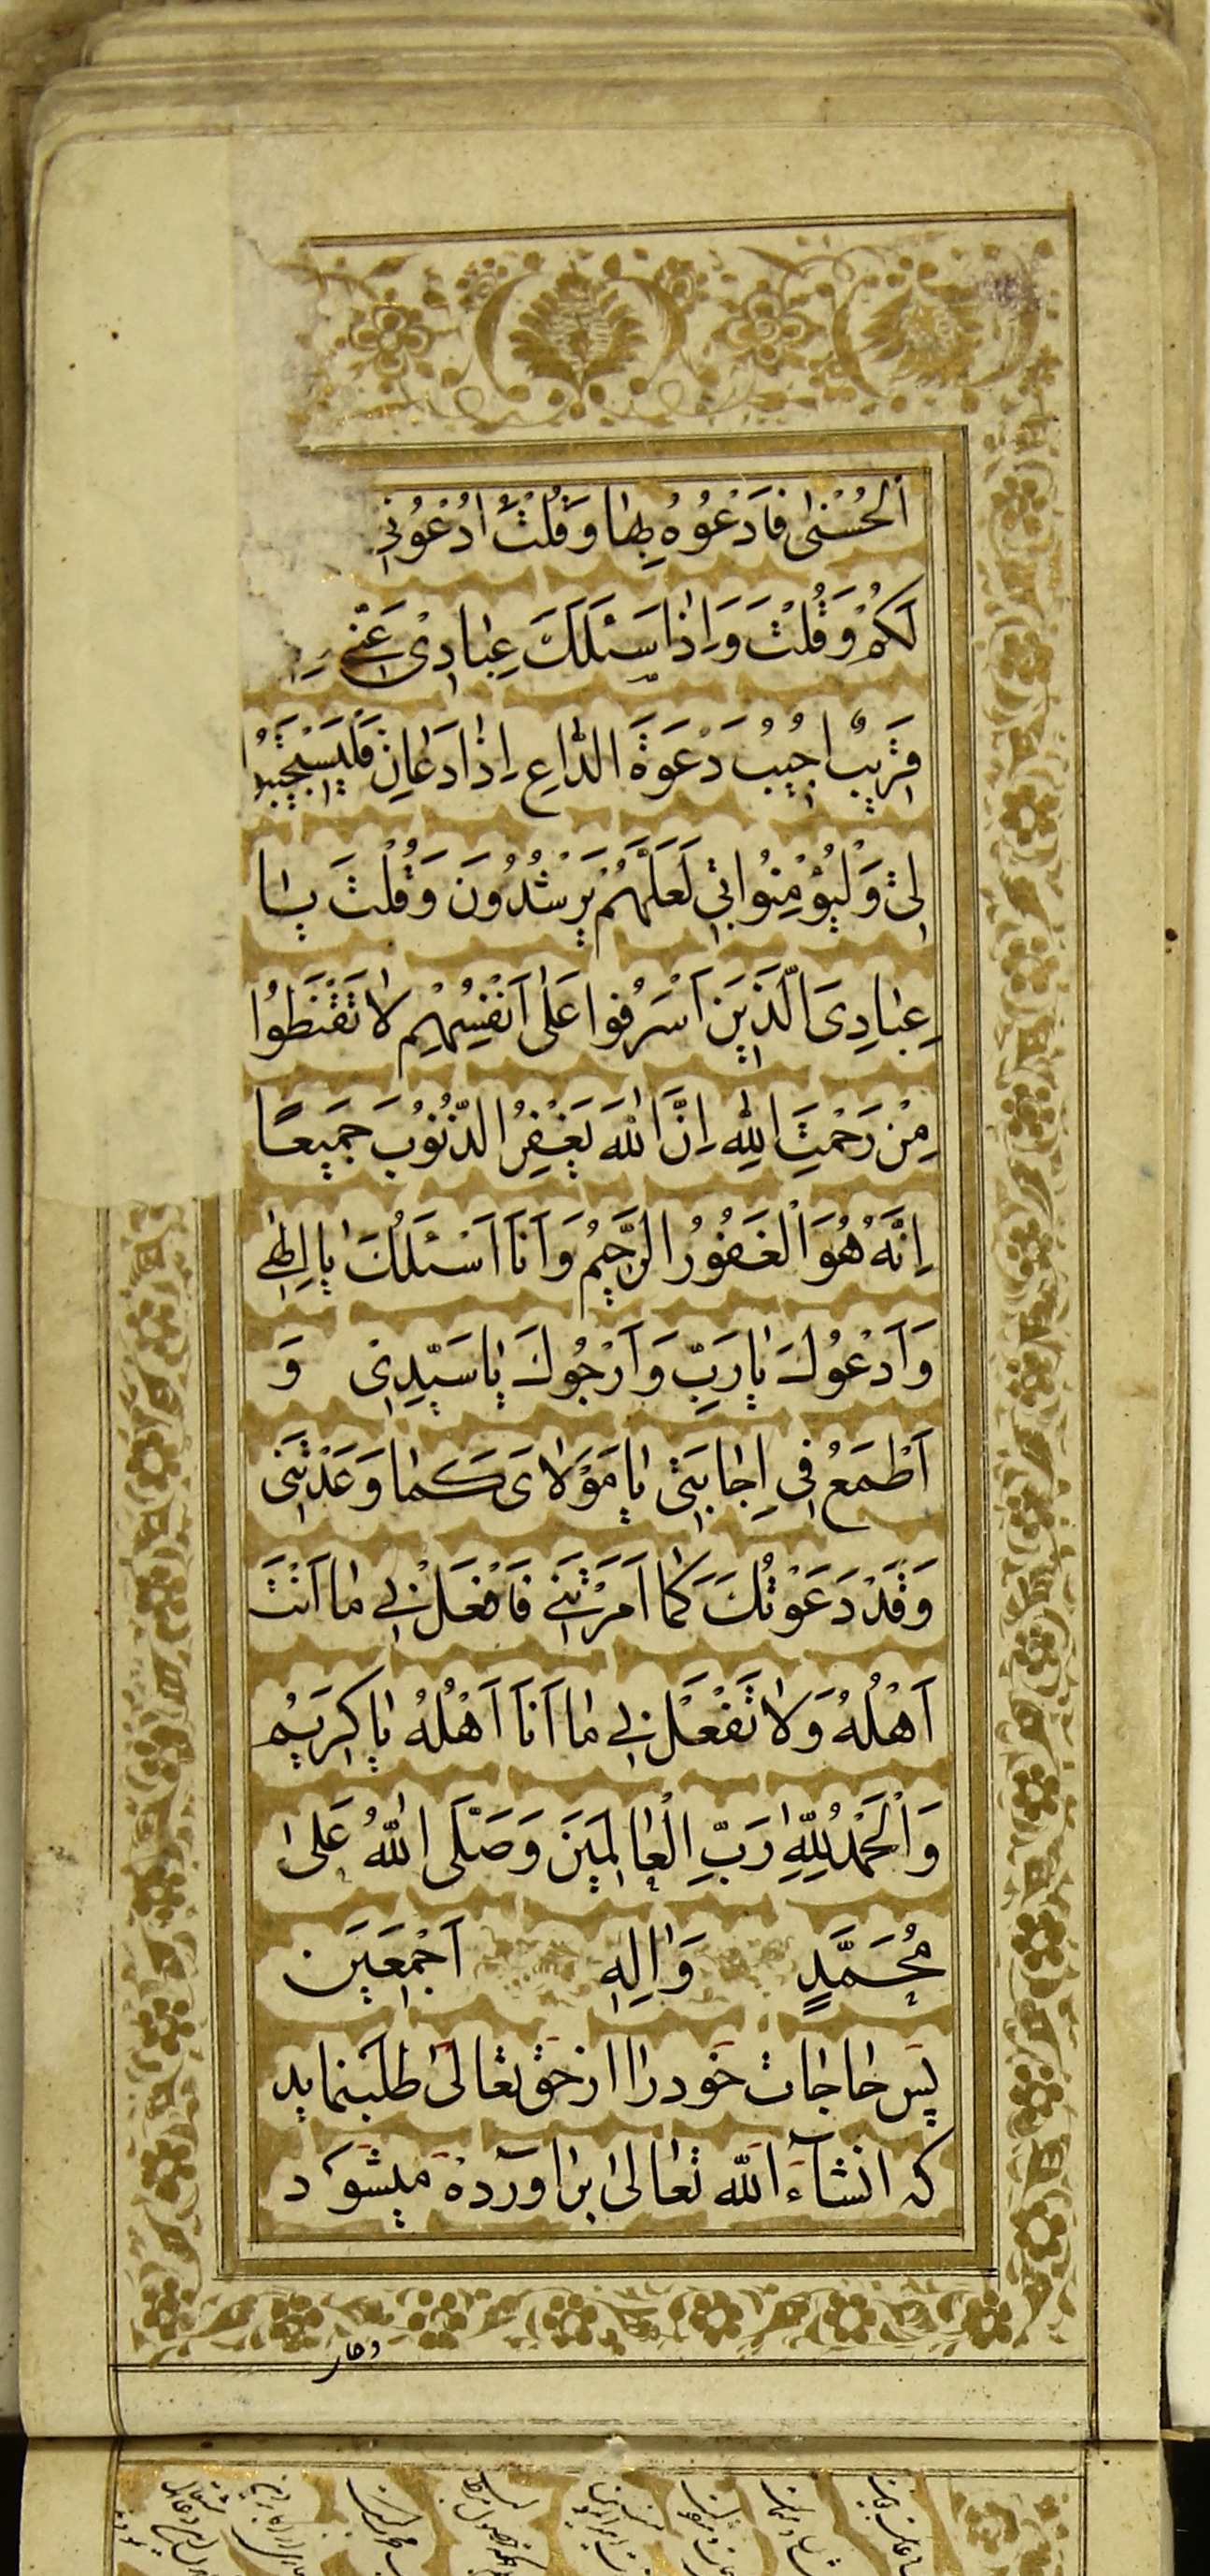 اَلْحُسْنٰى فَادْعُوهُ بِهٰا وَقُلْتَ ادْعُوْنِي
لَكُمْ وَقُلْتَ وَاِذٰا سَئَلَكَ عِبٰادِيْ عَنّي
قَرِيْبٌ اُجِيْبُ دَعْوَةَ الدّٰاعِ اِذٰا دَعٰانِ فَلْيَسْتَجِيْبُوا
لِيْ وَلْيُؤْمِنُوا بِيْ لَعَلَّهُمْ يَرْشُدُوْنَ وَقُلْتَ يٰا
عِبٰادِيَ الَّذِيْنَ اَسْرَفُوا عَلٰى اَنْفُسِهِمْ لٰا تَقْنَطُوا
مِنْ رَحْمَتِ اللّٰهِ اِنَّ اللّٰهَ يَغْفِرُ الذُّنُوْبَ جَمِيعًا
اِنَّهُ هُوَ الْغَفُوْرُ الرَّحِيْمُ وَاَنَا اَسْئَلُكَ يٰا اِلٰهِي
وَاَدْعُوْكَ يٰا رَبِّ وَاَرْجُوْكَ يٰا سَيِّدِيْ وَ
اَطْمَعُ فِي اِجٰابَتِيْ يٰا مَوْلٰايَ كَمٰا وَعَدْتَنِي
وَقَدْ دَعَوْتُكَ كَمٰا اَمَرْتَنِي فَافْعَلْ بِي مٰا اَنْتَ
اَهْلُهُ وَلٰا تَفْعَلْ بِي مٰا اَنَا اَهْلُهُ يٰا كَرِيْمُ
وَالْحَمْدُ لِلّٰهِ رَبِّ الْعٰالَمِيْنَ وَصَلَّى اللّٰهُ عَلٰى
مُحَمَّدٍ وَاٰلِهِ اَجْمَعِيْنَ
پس حاجات خود را از حق تعالى طلب نمايد
كه انشاءَ اللّه تعالى برآورده ميشود